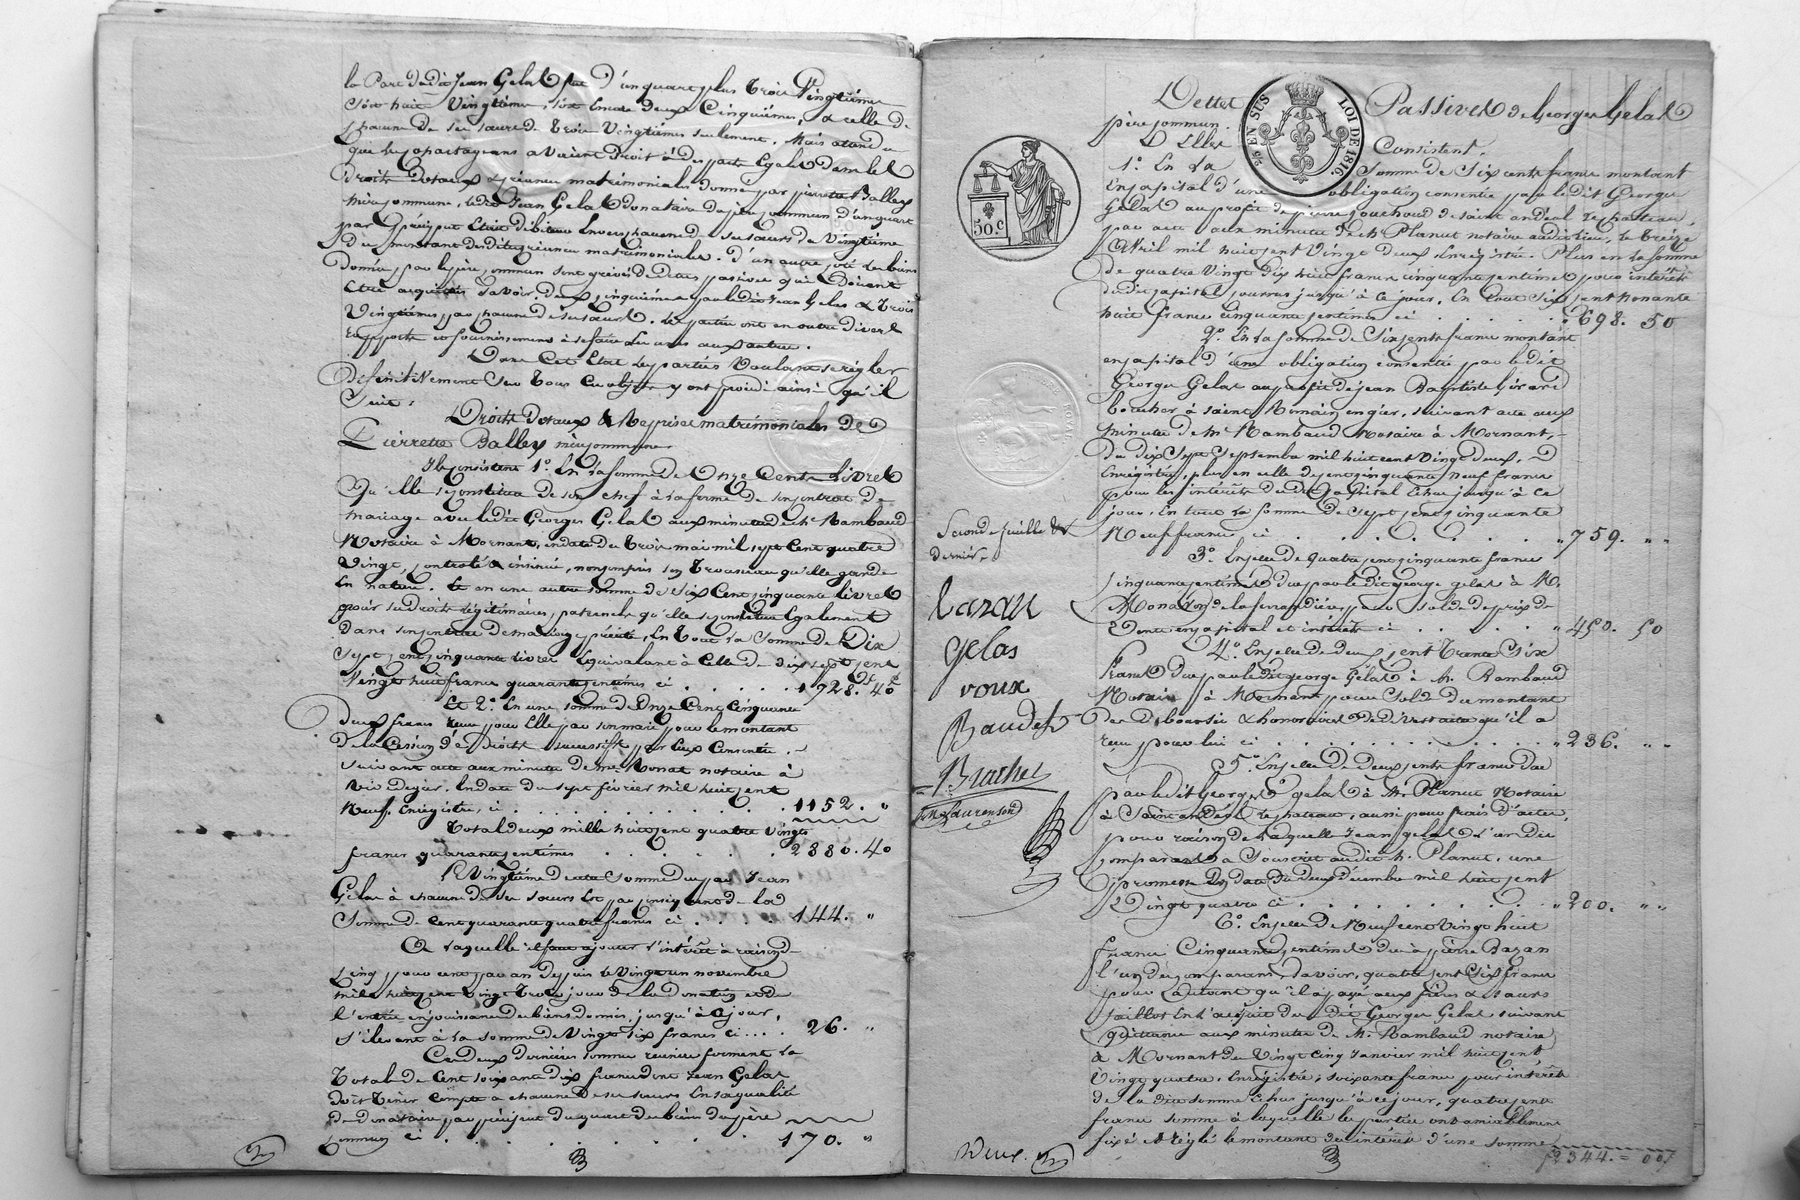 la Part dudit Jean Gelas fut d'un quart plus trois Vingtièmes
soit huit Vingtième, soit Encore deux Cinquièmes, & celle de
chacune de ses sœurs de trois Vingtièmes seulement. Mais attendu
que les copartageans avaient Droit à des parts Egales dans les
Droits dotaux & reprises matrimoniales donné par pierrette Balley
mère commune, ledit Jean Gelas donataire du père commun d'un quart
par Préciput Etait débiteur Envers chacune de ses sœurs du Vingtième
du montant desdites reprises matrimoniales. D'un autre côté les biens
donnés par le père commun sont grévés de dettes passives qui Doivent
Etre acquittés savoir, deux cinquièmes par ledit Jean Gelas & trois
Vingtièmes par chacune de ses sœurs. Les parties ont en outre divers
rapports et fournissemens à se faire les uns aux autres.
Dans Cet Etat les parties Voulant se régler
définitivement sur tous Ces objets y ont procédé ainsi qu'il
Suit.
Droits dotaux & Reprises matrimoniales de
Pierrette Balley mère commune
Ils consistent 1°. En la somme de Onze Cents Livres
Qu'elle se constitua de son chef à la forme de son contrat de
mariage avec ledit Georges Gelas aux minutes de Me Rambaud
Notaire à Mornant, en date du trois mai mil sept Cent quatre
Vingt, contrôlé & insinué, non compris son trousseau qu'elle garde
En nature. Et en une autre somme de Six Cent cinquante livres
pour ses droits légitimaires paternels qu'elle se constitua Egalement
dans son contrat de mariage précité, En tout la somme de Dix
sept cent cinquante livres Equivalant à Celle de dix sept cent
Vingt huit francs quarante centimes ci . . . . . 1728. 40
Et 2°. En une somme d'Onze Cent Cinquante
deux francs reçue pour Elle par son mari pour le montant
de la Cession de Droits successifs par Eux Consentie
suivant acte aux minutes de Me Ronat notaire à
Rive de gier, En date du sept février mil huit cent
Neuf. Enregistré, ci . . . . . . . . 1152. "
Total deux mille huit cent quatre Vingts
francs quarante centimes . . . . . . 2880. 40
Le Vingtième de cette Somme du par Jean
Gelas à chacune de ses sœurs Est par conséquent de la
Somme de Cent quarante quatre francs ci . . 144. "
A laquelle il faut ajouter l'intérêt à raison de
Cinq pour cent par an depuis le Vingt un novembre
mil huit cent Vingt trois jour de la donation et de
l'entrée en jouissance des biens donnés jusqu'à ce jour,
s'élevant à la somme de Vingt six francs ci . . . 26. "
Ces deux dernières sommes réunies forment la
Total de Cent soixante dix francs dont Jean Gelas
doit tenir compte à chacune de ses sœurs En sa qualité
de donataire par préciput du quart des biens du père
commun ci . . . . . . . . 170. "
2
Dettes Passives de Georges Gelas
père commun.
25 EN SUS LOI DE 1816.
50.C
D Elles Consistent.
1°. En La Somme de Six cents francs montant
En capital d'une obligation consentie par ledit Georges
Gelas au profit de pierre Jouchoud de saint andéol le chateau,
par acte aux minutes de Me Planut notaire audit lieu, le treize
Avril mil huit cent Vingt deux Enregistré. Plus en la somme
de quatre Vingt dix huit francs cinquante centimes pour intérêts
dudit capital courrus jusqu'à ce jour, En tout Six cent nonante
huit francs cinquante centimes ci . . . . . " 698. 50
2°. En la somme de Six cents francs montant
en capital d'une obligation consentie par ledit
Georges Gelas au profit de jean Baptiste Girard
boucher à saint Romain en gier, suivant acte aux
minutes de Me Rambaud Notaire à Mornant,
du dix Sept Septembre mil huit cent Vingt deux,
Enregistré, plus en celle de cent cinquante neuf francs
pour les intérêts dudit capital Echus jusqu'à ce
jour, En tout la somme de Sept cent cinquante
Neuf francs ci . . . . . . . . " 759. " "
3°. En celle de quatre cent cinquante francs
cinquante centimes dus par ledit george gelas à M.
Monaton de la ferrandière, pour solde de prix de
Vente en capital et intérêts ci . . . . . " 450. 50
4°. En celle de deux cent trente Six
francs dus par ledit george Gelas à Me Rambaud
Notaire à Mornant pour Solde du montant
des déboursés & honoraires de Divers actes qu'il a
reçu pour lui ci . . . . . . . . " 236. " "
5°. En celle de Deux cents francs due
par ledit Georges gelas à Me Planut Notaire
à Saint andéol le chateau, aussi pour frais d'actes,
pour raison de laquelle Jean gelas l'un des
comparants a Souscrit audit Me Planut, une
promesse En date du deux décembre mil huit cent
Vingt quatre ci . . . . . . . . " 200. " "
6°. En celle de Neuf cent Vingt huit
francs Cinquante centimes due à pierre Bazan
l'un des comparans, savoir, quatre cent Six francs
pour Autant qu'il a payé aux frères & sœurs
Jaillot En l'acquit dudit Georges Gelas suivant
quittance aux minutes de Me Rambaud notaire
à Mornant du Vingt cinq Janvier mil huit cent
Vingt quatre, Enregistré, soixante francs pour intérêts
de la dite somme Echus jusqu'à ce jour, quatre cents
francs somme à laquelle les parties ont amiablement
fixé & réglé le montant des intérêts d'une somme
2344. = 00.
Seconde feuille &
dernière
bazan
gelas
roux
Baudet
Brachet
M. Laurenson
Deux. 2